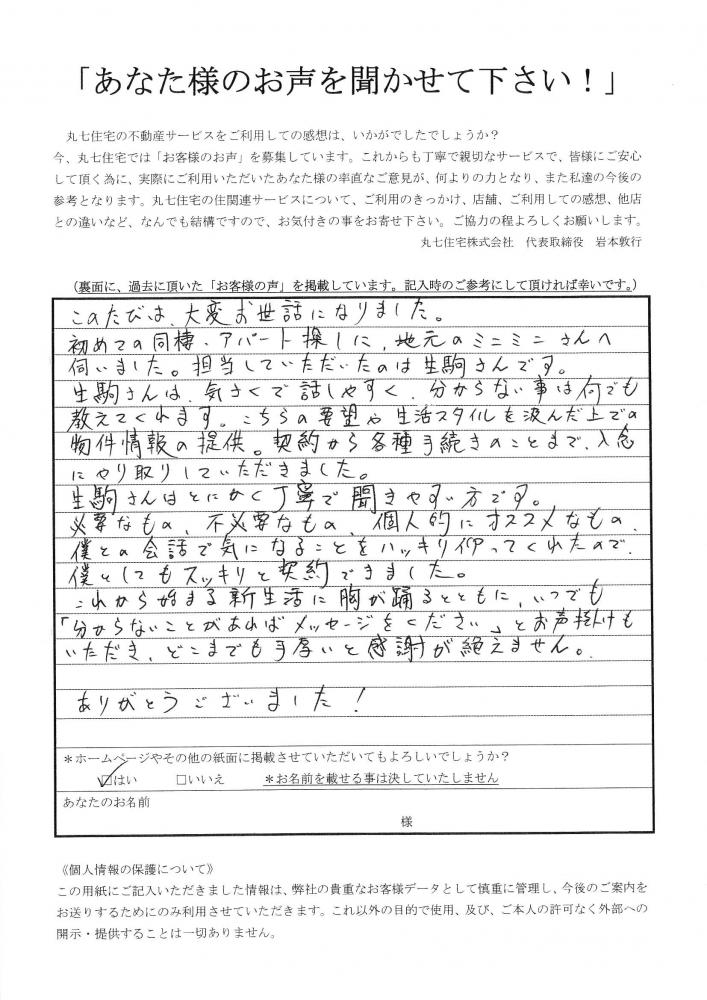 「あなた様のお声を聞かせて下さい！」
丸七住宅の不動産サービスをご利用しての感想は、いかがでしたでしょうか？
今、丸七住宅では「お客様のお声」を募集しています。これからも丁寧で親切なサービスで、皆様にご安心
して頂く為に、実際にご利用いただいたあなた様の率直なご意見が、何よりの力となり、また私達の今後の
参考となります。丸七住宅の住関連サービスについて、ご利用のきっかけ、店舗、ご利用しての感想、他店
との違いなど、なんでも結構ですので、お気付きの事をお寄せ下さい。ご協力の程よろしくお願いします。
丸七住宅株式会社　代表取締役　岩本敦行
（裏面に、過去に頂いた「お客様の声」を掲載しています。記入時のご参考にして頂ければ幸いです。）
このたびは、大変お世話になりました。
初めての同棲・アパート探しに、地元のミニミニさんへ
伺いました。担当していただいたのは生駒さんです。
生駒さんは、気さくで話しやすく、分からない事は何でも
教えてくれます。こちらの要望や生活スタイルを汲んだ上での
物件情報の提供。契約から各種手続きのことまで、入念
にやり取りしていただきました。
生駒さんはとにかく丁寧で聞きやすい方です。
必要なもの、不必要なもの、個人的にオススメなもの、
僕との会話で気になることをハッキリ仰ってくれたので、
僕としてもスッキリと契約できました。
これから始まる新生活に胸が踊るとともに、いつでも
「分からないことがあればメッセージをください」とお声掛けも
いただき、どこまでも手厚いと感謝が絶えません。
ありがとうございました！
＊ホームページやその他の紙面に掲載させていただいてもよろしいでしょうか？
☑はい　□いいえ　＊お名前を載せる事は決していたしません
あなたのお名前
様
《個人情報の保護について》
この用紙にご記入いただきました情報は、弊社の貴重なお客様データとして慎重に管理し、今後のご案内を
お送りするためにのみ利用させていただきます。これ以外の目的で使用、及び、ご本人の許可なく外部への
開示・提供することは一切ありません。